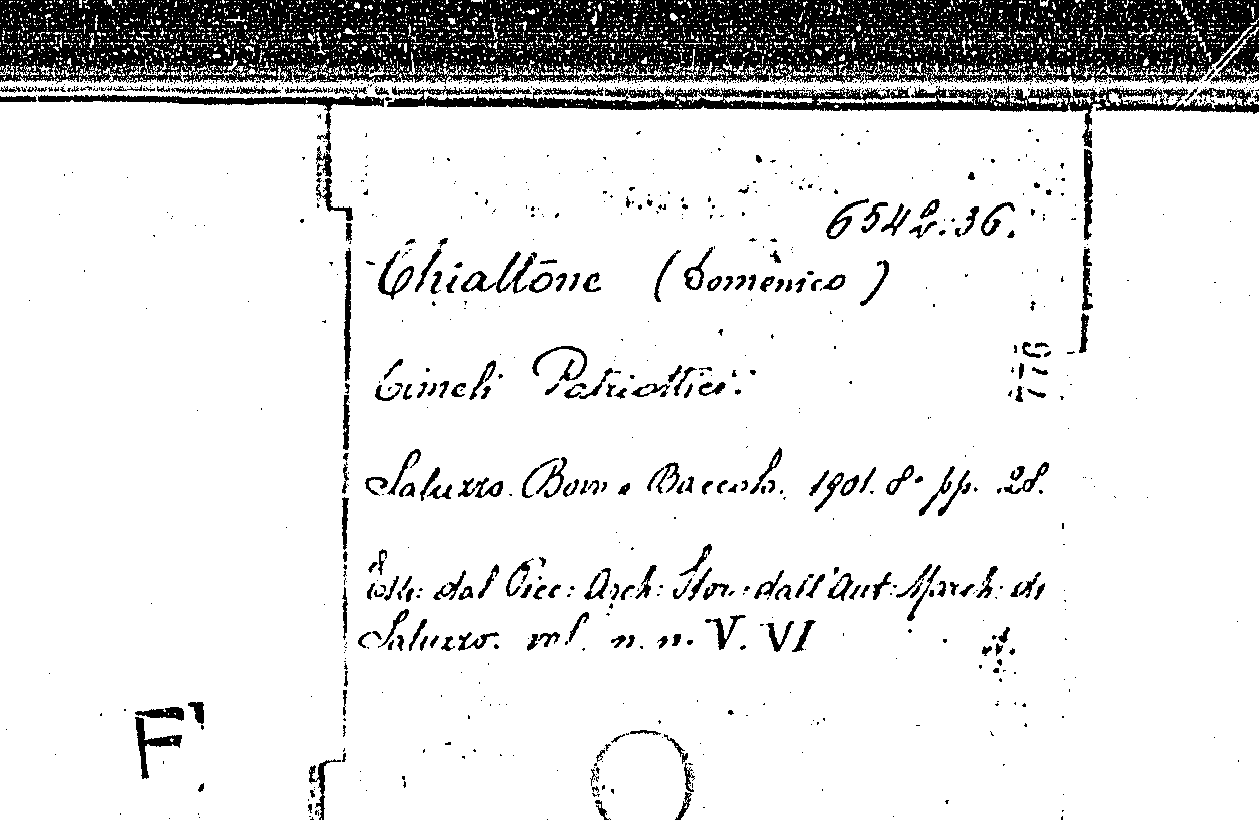 6542.36.
Chiattone (Domenico)
Cimeli Patriottici.
776
Saluzzo. Bovo e Baccolo. 1901. 8º pp. 28.
Estr: dal Picc: Arch: Stor: dall'Ant: March: di
Saluzzo. vol. n. n. V. VI
F